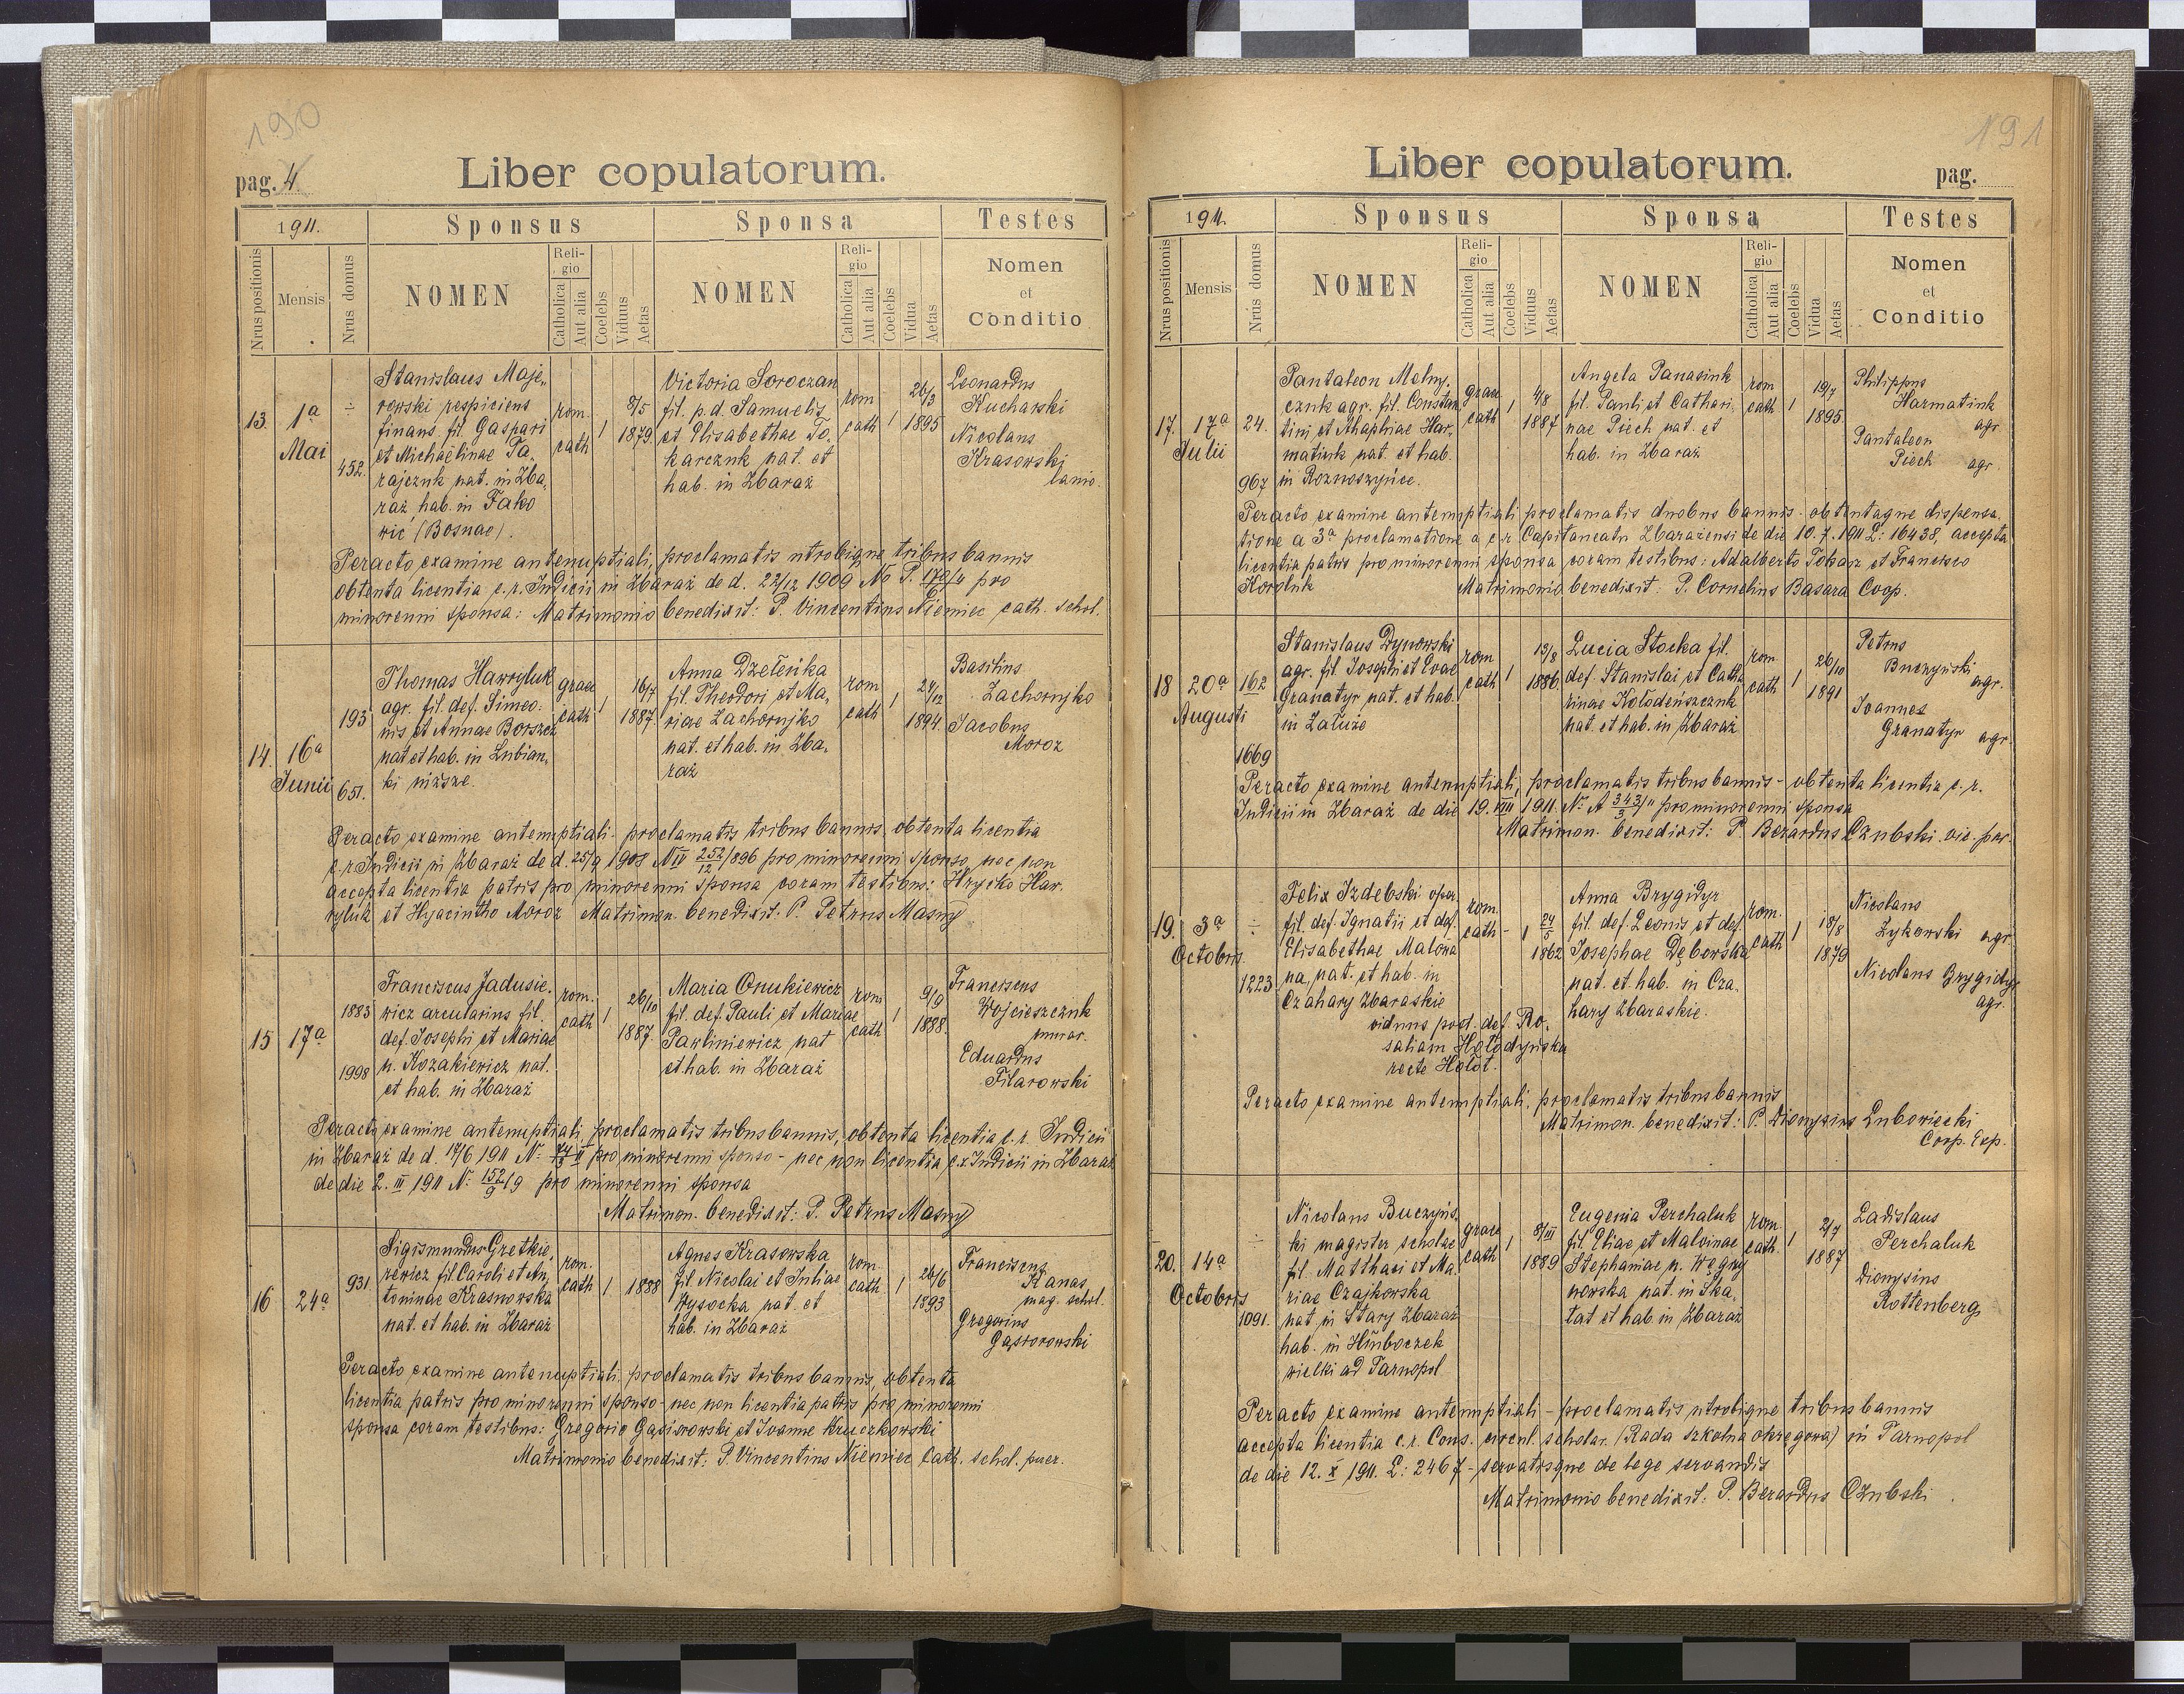 190
pag. 4
Liber copulatorum.
1911.
Sponsus
Sponsa
Testes
Nrus positionis
Mensis
Nrus domus
NOMEN
Religio
Catholica
Aut alia
Coelebs
Viduus
Aetas
NOMEN
Religio
Catholica
Aut alia
Coelebs
Vidua
Aetas
Nomen
et
Conditio
13.
1ª
Mai
÷
452.
Stanislaus Maje„
rowski respiciens
finans. fil. Gaspari
et Michaelinae Ta„
rajczuk nat. in Zba„
raż, hab. in Fako
vić (Bosnae).
rom.
cath
1
8/5
1879
Victoria Soroczan
fil. p.d. Samuelis
et Elisabethae To„
karczuk nat. et
hab. in Zbaraż
rom
cath
1
26/3
1895
Leonardus
Kucharski
Nicolaus
Krasowski
lanio.
Peracto examine antenuptiali, proclamatis utrobique tribus bannis
obtenta licentia c.r. Judicii in Zbaraż de d. 22/12 1909 No P. 172/6/4 pro
minorenni sponsa: Matrimonio benedixit: P. Vincentius Niemiec cath. schol.
14.
16ª
Junii
193
651.
Thomas Hawryluk
agr. fil. def. Simeo„
nis et Annae Borszcz
nat et hab. in Lubian„
ki niższe.
graec
cath
1
16/7
1887.
Anna Dzeleńka
fil. Theodori et Ma„
riae Zachornjko
nat. et hab. in Zba„
raż
rom
cath
1
24/12
1894.
Basilius
Zachornjko
Jacobus
Moroz
Peracto examine antenuptiali. proclamatis tribus bannis, obtenta licentia
c.r. Judicii in Zbaraż de d. 25/9 1908 N IV 252/12/896 pro minorenni sponso, nec non
accepta licentia patris pro minorenni sponsa coram testibus: Hryćko Haw„
ryluk et Hyacintho Moroz Matrimon. benedixit. P. Petrus Masny
15
17ª
1883
1998
Franciscus Jadusie„
wicz arcularius fil.
def. Josephi et Mariae
n. Kozakiewicz nat.
et hab. in Zbaraż
rom.
cath
1
26/10
1887.
Maria Onukiewicz
fil. def. Pauli et Mariae
Pawliniewicz nat
et hab. in Zbaraż
rom
cath
1
9/9
1888.
Franciscus
Wojcieszczuk
murar.
Eduardus
Filarowski
Peracto examine antenuptiali, proclamatis tribus bannis, obtenta licentia c.r. Judicii
in Zbaraż de d. 17/6 1911 N: pro minorenni sponso - nec non licentia c.r Judicii in Zbaraż
de die 2. III 1911 N: 152/9/9 pro minorenni sponsa
Matrimon. benedixit: P. Petrus Masny
16
24ª
931
Sigismundus Gretkie„
rewicz fil Caroli et An„
toninae Krasnowska
nat. et hab. in Zbaraż
rom.
cath
1
1888
Agnes Krasowska
fil Nicolai et Juliae
Wysocka nat. et
hab. in Zbaraż
rom.
cath.
1
26/6
1893
Franciscus
Kanas
mag. schol.
Gregorius
Gąsiorowski
Peracto examine antenuptiali, proclamatis tribus bannis, obtenta
licentia patris pro minorenni sponso - nec non licentia patris pro minorenni
sponsa coram testibus: Gregorio Gąsiorowski et Joanne Kruczkowski
Matrimonio benedixit: P. Vincentius Niemiec Cath. schol. puer.
191
Liber copulatorum.
pag.
1911.
Sponsus
Sponsa
Testes
Nrus positionis
Mensis
Nrus domus
NOMEN
Religio
Catholica
Aut alia
Coelebs
Viduus
Aetas
NOMEN
Religio
Catholica
Aut alia
Coelebs
Vidua
Aetas
Nomen
et
Conditio
17.
17ª
Julii
24.
967
Pantaleon Melny„
czuk agr. fil. Constan„
tini et Ahaphiae Har„
matiuk nat. et hab.
in Roznoszyńce.
graec
cath
1
4/8
1887
Angela Panasiuk
fil. Pauli et Cathari„
nae Piech nat. et
hab. in Zbaraż
rom
cath
1
19/7
1895
Philippus
Harmatiuk
agr.
Pantaleon
Piech agr.
Peracto examine antenuptiali proclamatis duobus bannis - obtentaque dispensa„
tione a 3ª proclamatione a c.r Capitaneatu Zbarażensi de die 10.7.1911 L: 16438, accepta
licentia patris pro minorenni sponsa coram testibus: Adalberto Tokarz et Francisco
Koroluk Matrimonio benedixit: P. Cornelius Basara Coop.
18
20ª
Augusti
162
1669
Stanislaus Dynowski
agr. fil. Josephi et Evae
Granatyr nat. et hab.
in Załuże
rom
cath
1
13/8
1886.
Lucia Stocka fil.
def. Stanislai et Catha„
rinae Kołodeńszczuk
nat. et hab. in Zbaraż
rom.
cath
1
26/10
1891
Petrus
Buczyński
agr.
Joannes
Granatyr agr.
Peracto examine antenuptiali, proclamatis tribus bannis - obtenta licentia c.r.
Judicii in Zbaraż de die 19. VIII 1911. N: A 343/3/11 pro minorenni sponsa
Matrimon. benedixit: P. Berardus Czubski. vic. par.
19.
3ª
Octobris
÷
1223
Felix Izdebski oper
fil. def. Ignatii et def.
Elisabethae Malowa
na, nat. et hab. in
Czahary Zbaraskie
viduus post. def. Ro„
saliam Hołodyńska
recte Hołot.
rom.
cath
-
1
24/5
1862
Anna Brygidyr
fil. def. Leonis et def.
Josephae Dębowska
nat. et hab. in Cza„
hary Zbaraskie.
rom.
cath
1
18/8
1879
Nicolaus
Żykowski agr
Nicolaus Brygidyr
agr.
Peracto examine antenuptiali, proclamatis tribus bannis
Matrimon. benedixit: P. Dionysius Lubowiecki
Coop. Exp.
20.
14ª
Octobris
÷
1091.
Nicolaus Buczyńs„
ki magister scholae
fil. Matthaei et Ma„
riae Czajkowska
nat in Stary Zbaraż
hab. in Hłuboczek
wielki ad Tarnopol
graec
cath
1
8/III
1889
Eugenia Perchaluk
fil. Eliae et Malvinae
Stephaniae n. Węgrzy
nowska nat. in Ska„
łat et hab in Zbaraż
rom.
cath.
1
2/7
1887
Ladislaus
Perchaluk
Dionysius
Rottenberg
Peracto examine antenuptiali - proclamatis utrobique tribus bannis
accepta licentia c.r. Cons. circul. scholar. (Rada szkolna okręgowa) in Tarnopol
de die 12. X 1911. L: 2467 - servatisque de lege servandis
Matrimonio benedixit: P. Berardus Czubski